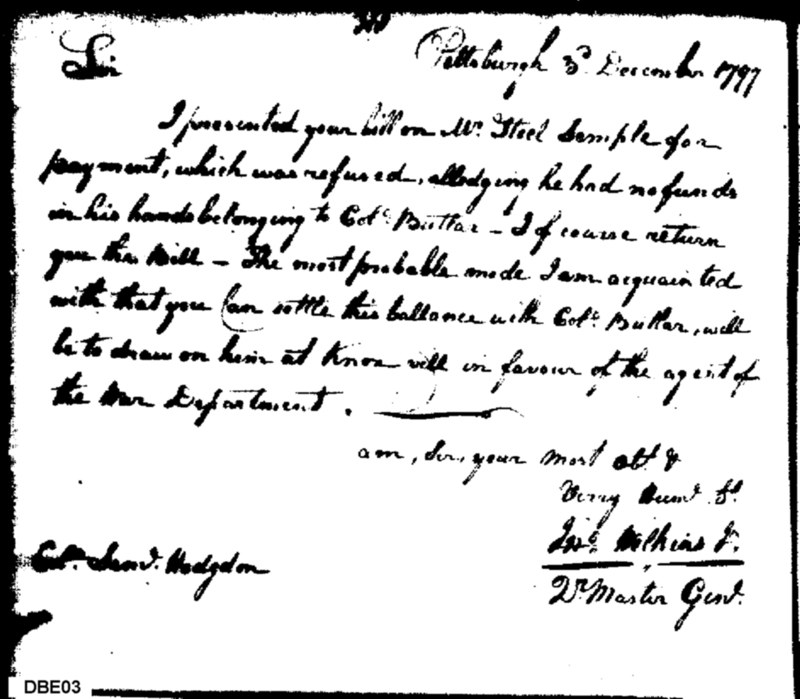 Sir
Pittsburgh 3d December 1797
I presented your bill on Mr. Steel Semple for
payment, which was refused, alledging he had no funds
in his hands belonging to Colo. Butlar – I of course return
you the Bill – The most probable mode I am acquainted
with that you Can settle this ballance with Colo. Butlar, will
be to draw on him at Knoxvill in favour of the agent of
the War Department.
am, Sir, your most obt. &
Verry Humb. St.
Jno. Wilkins Jr.
Qr. Master Genl.
Colo. Saml. Hodgdon
DBE03